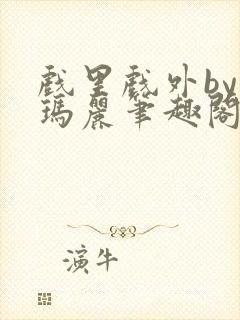 戲里戲外by
瑪麗筆趣閣
演牛